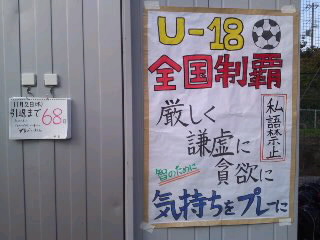 U-18
全国制覇
厳しく
謙虚に
貪欲に
私語禁止
智のために
気持ちをプレーに
11月2日(水)
引退まで
68日